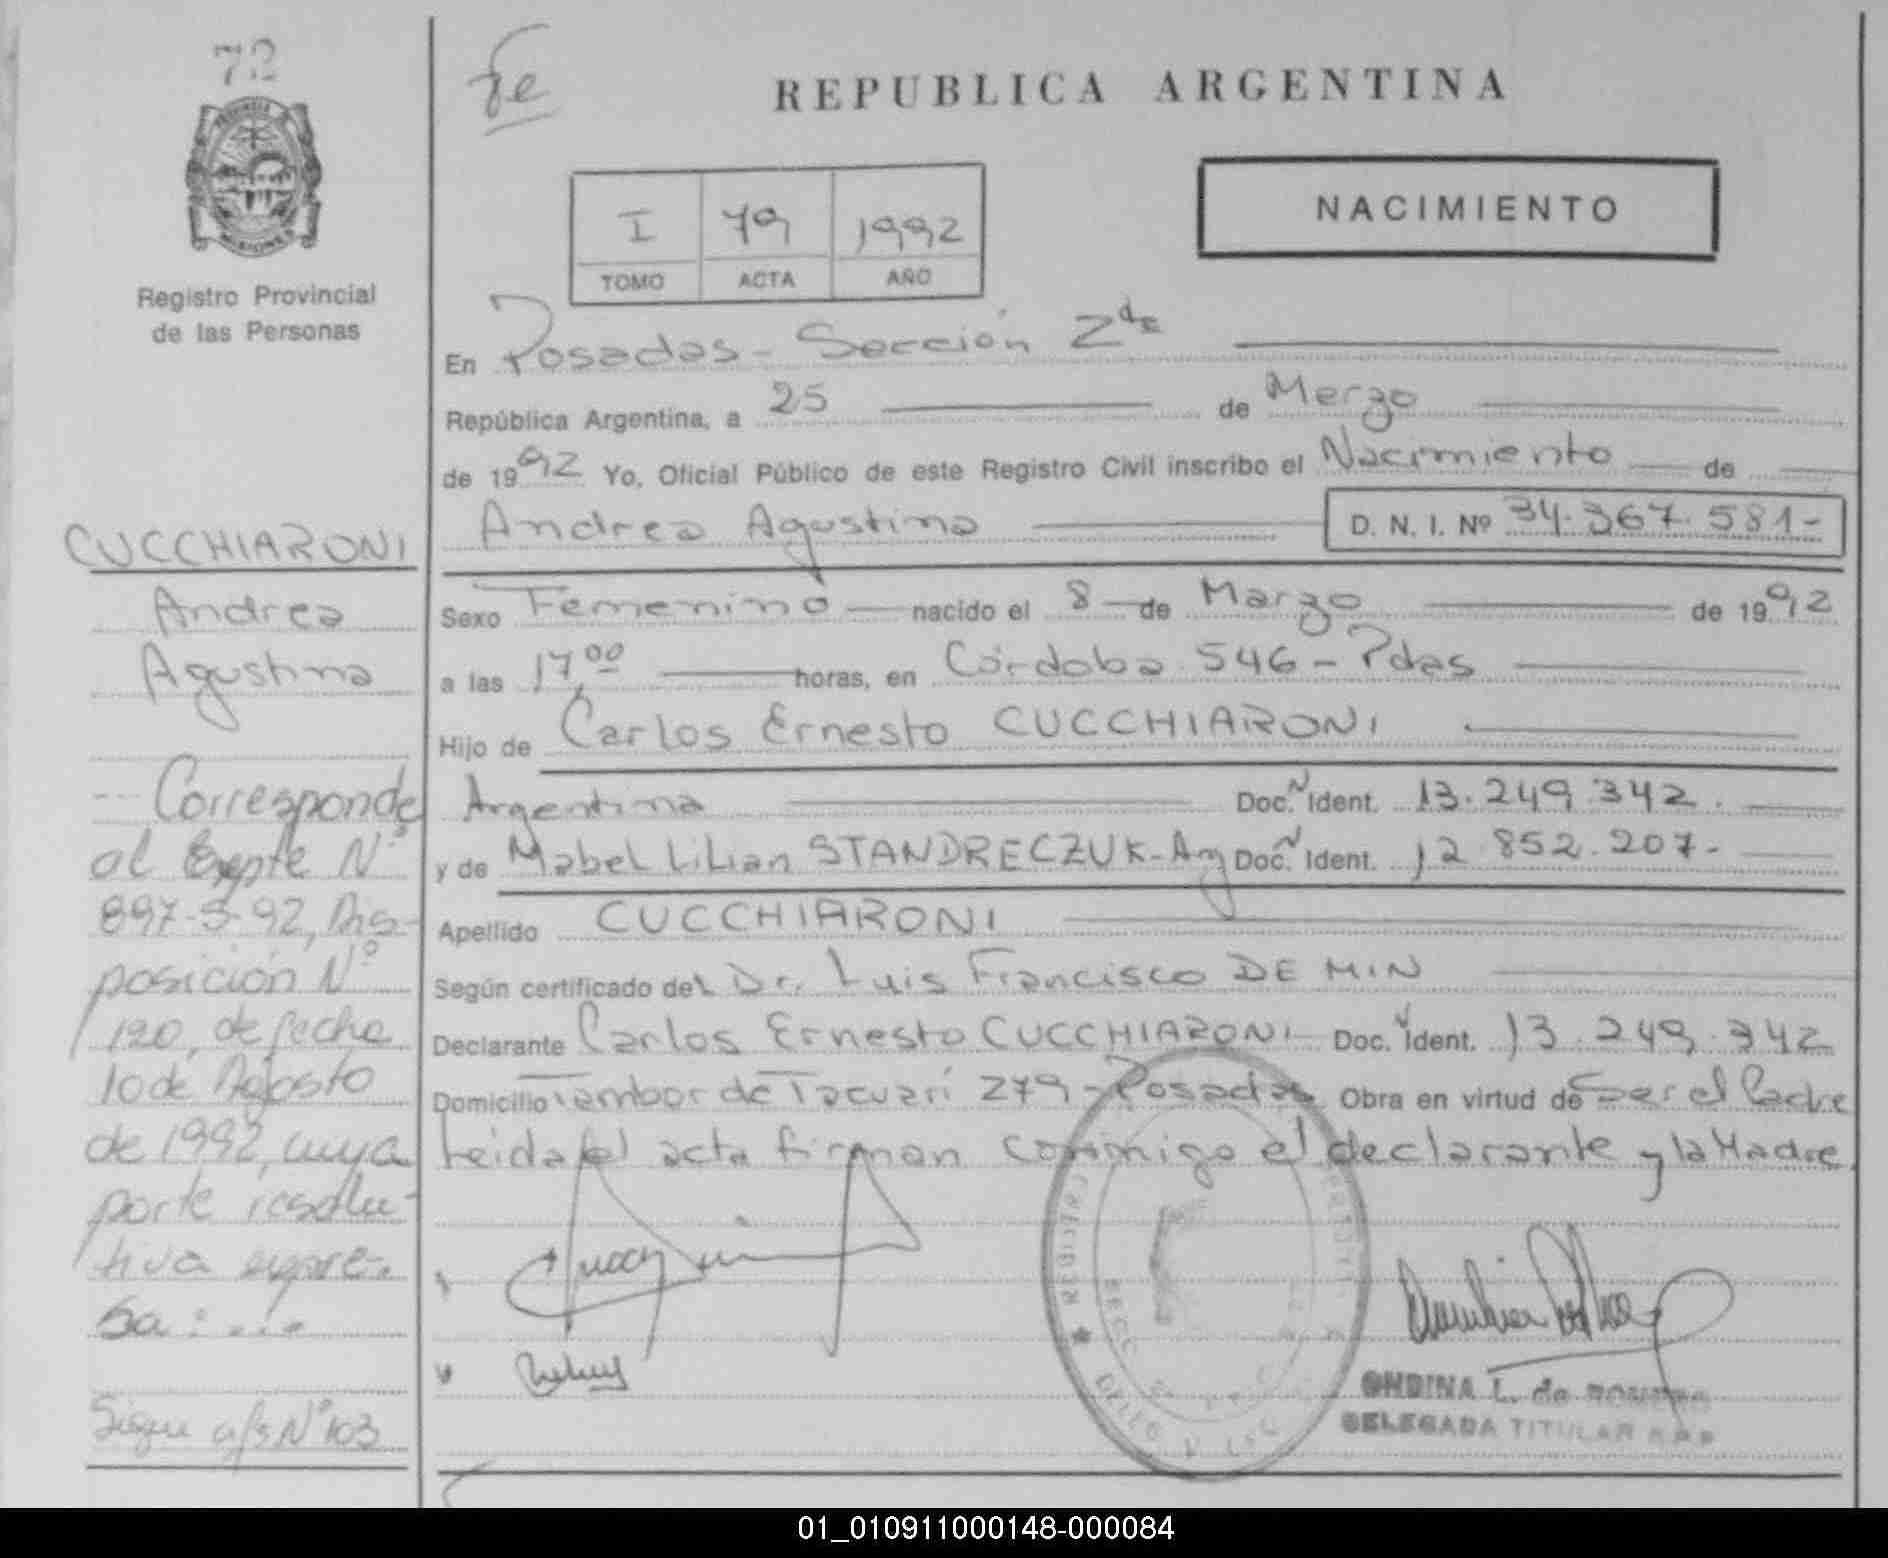 72
Registro Provincial
de las Personas
CUCCHIARONI
Andrea
Agustina
--- Corresponde
al Expte Nº
897-S-92, Dis-
posición Nº
120, de fecha
10 de Agosto
de 1992, cuya
parte resolu-
tiva expre-
sa: ...
Sigue a/s Nº 103
REPUBLICA ARGENTINA
NACIMIENTO
I 79 1992
TOMO ACTA AÑO
En Posadas - Sección 2da
República Argentina, a 25 de Marzo
de 1992 Yo, Oficial Público de este Registro Civil inscribo el Nacimiento de
Andrea Agustina D. N. I. Nº 34.367.581-
Sexo Femenino nacido el 8 de Marzo de 1992
a las 17,00 horas, en Córdoba 546 - Pdas
Hijo de Carlos Ernesto CUCCHIARONI
Argentina Doc. N Ident. 13.249.342.
y de Mabel Lilian STANDRECZUK - Arg Doc. N Ident. 12.852.207-
Apellido CUCCHIARONI
Según certificado del Dr. Luis Francisco DE MIN
Declarante Carlos Ernesto CUCCHIARONI Doc. N Ident. 13.249.342
Domicilio Tambor de Tacuarí 279 - Posadas Obra en virtud de Ser el Padre
Leida el acta firman conmigo el declarante y la Madre.
ONDINA L. de ROMERO
DELEGADA TITULAR R.P.P
01_010911000148-000084